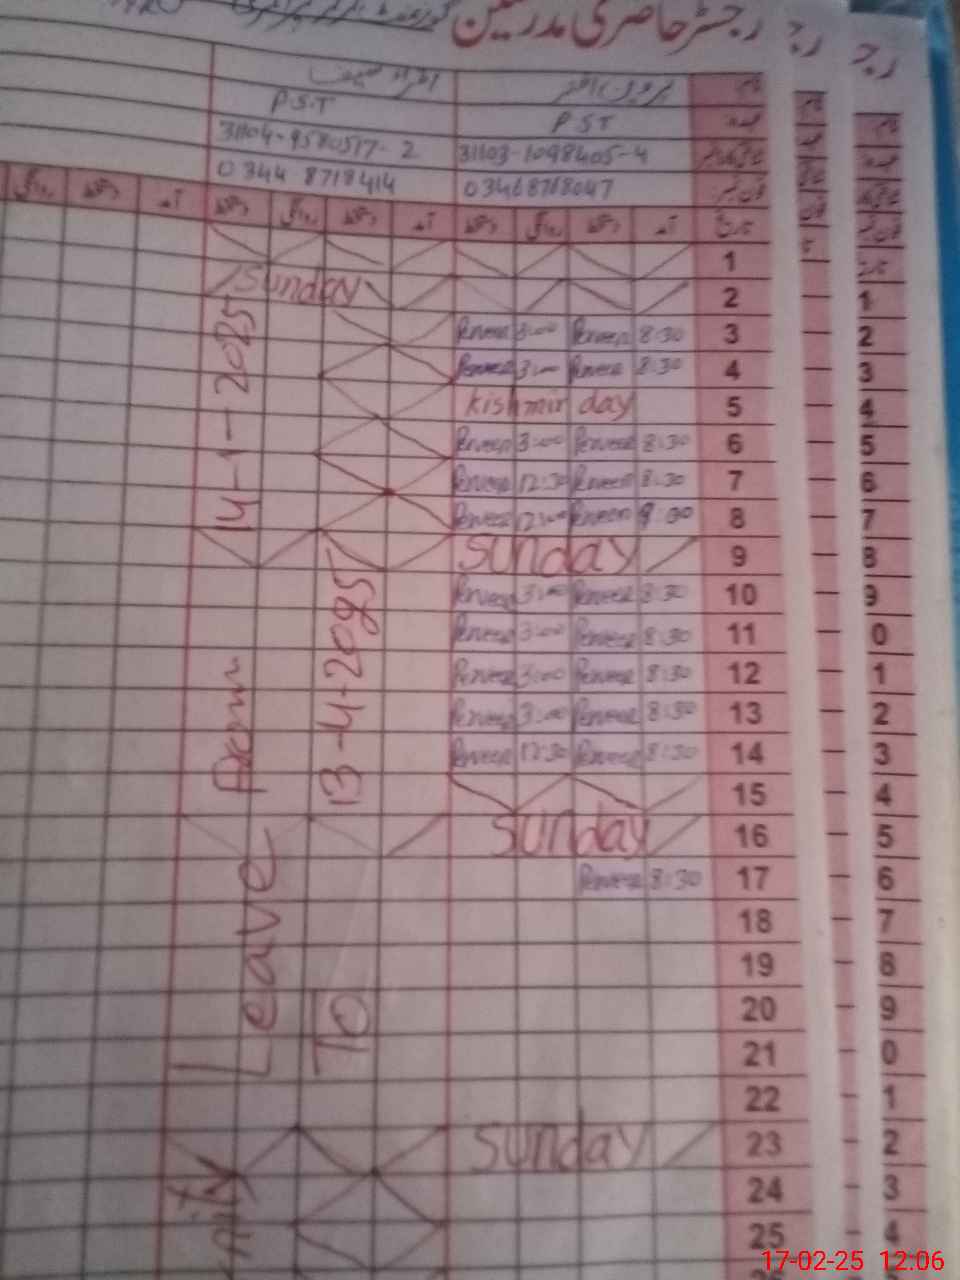 رجسٹر حاضری مدرسین
نام
عہدہ P.S.T P.S.T
31103-1098405-4 31104-9580517-2
فون نمبر 03468768047 0344 8718414
تاریخ آمد دستخط روانگی دستخط آمد دستخط روانگی دستخط آمد دستخط روانگی
1
2 Sunday
3 8:30 Perveen 3:00 Perveen
4 8:30 Perveen 3:00 Perveen
5 kishmir day
6 8:30 Perveen 3:00 Perveen
7 8:30 Perveen 12:30 Perveen
8 Perveen 12:00 Perveen
9 Sunday
10 8:30 Perveen 3:00 Perveen
11 8:30 Perveen 3:00 Perveen
12 8:30 Perveen 3:00 Perveen
13 8:30 Perveen 3:00 Perveen
14 8:30 Perveen 12:30 Perveen
15
16 Sunday
17 8:30 Perveen
18
19
20
21
22
23 Sunday
24
25
Leave From 14-1-2025
To 13-4-2025
17-02-25 12:06